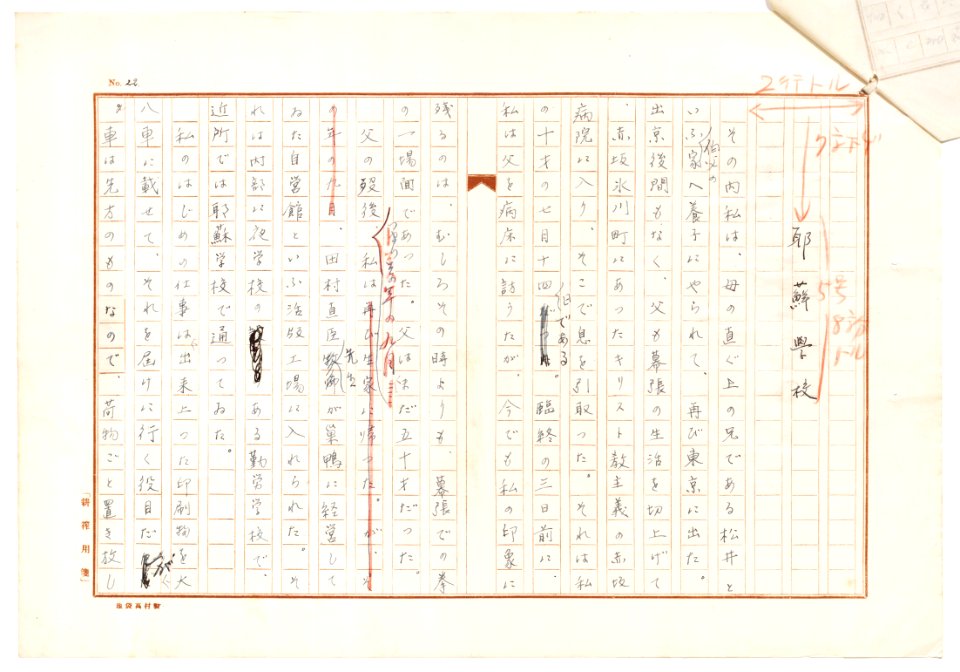 No. 22
耶蘇学校
その内私は、母の直ぐ上の兄である松井と
いふ伯父の家へ養子にやられて、再び東京に出た。
出京後間もなく、父も幕張の生活を切上げて
、赤坂氷川町にあったキリスト教主義の赤坂
病院に入り、そこで息を引取った。それは私
の十才の七月十四日である。臨終の三日前に、
私は父を病床に訪うたが、今でも私の印象に
残るのは、むしろその時よりも、幕張での拳
の一場面であった。父はまだ五十才だった。
父の歿後、私は再び生家に帰った。が、そ
の年の九月
、田村直臣先生が巣鴨に経営して
ゐた自営館といふ活版工場に入れられた。そ
れは内部に夜学校のある勤労学校で、
近所では耶蘇学校で通ってゐた。
私のはじめの仕事は、出来上った印刷物を大
八車に載せて、それを届けに行く役目だが
車は先方のものなので、荷物ごと置き放し
5号